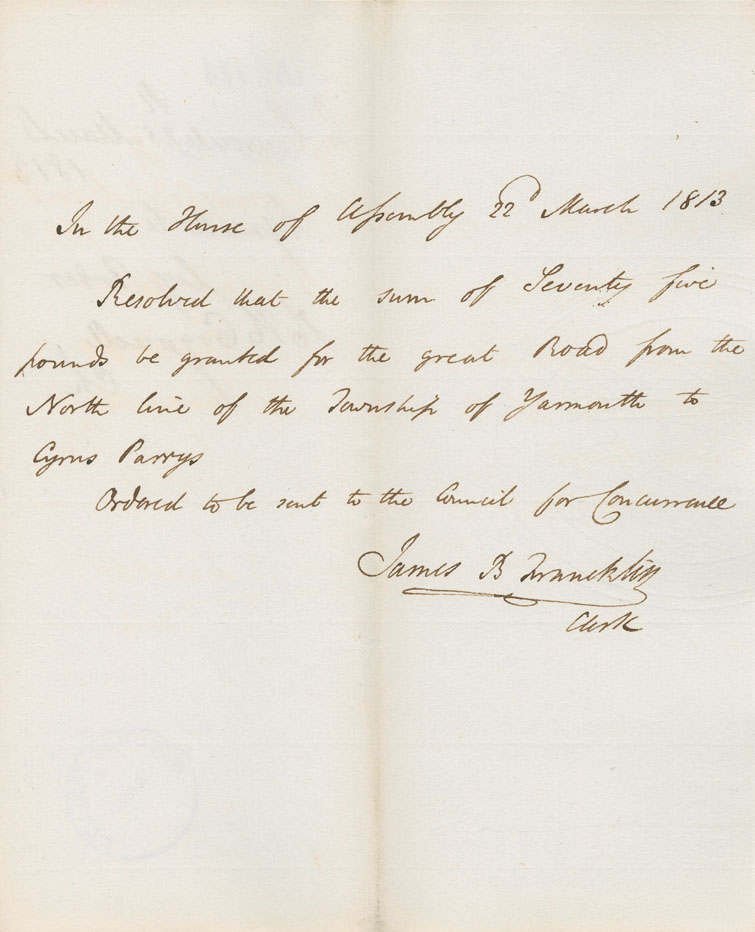 In the House of Assembly 22d March 1813
Resolved that the sum of Seventy five
pounds be granted for the great Road from the
North line of the Township of Yarmouth to
Cyrus Parrys
Ordered to be sent to the Council for Concurrence
James B Francklin
Clerk